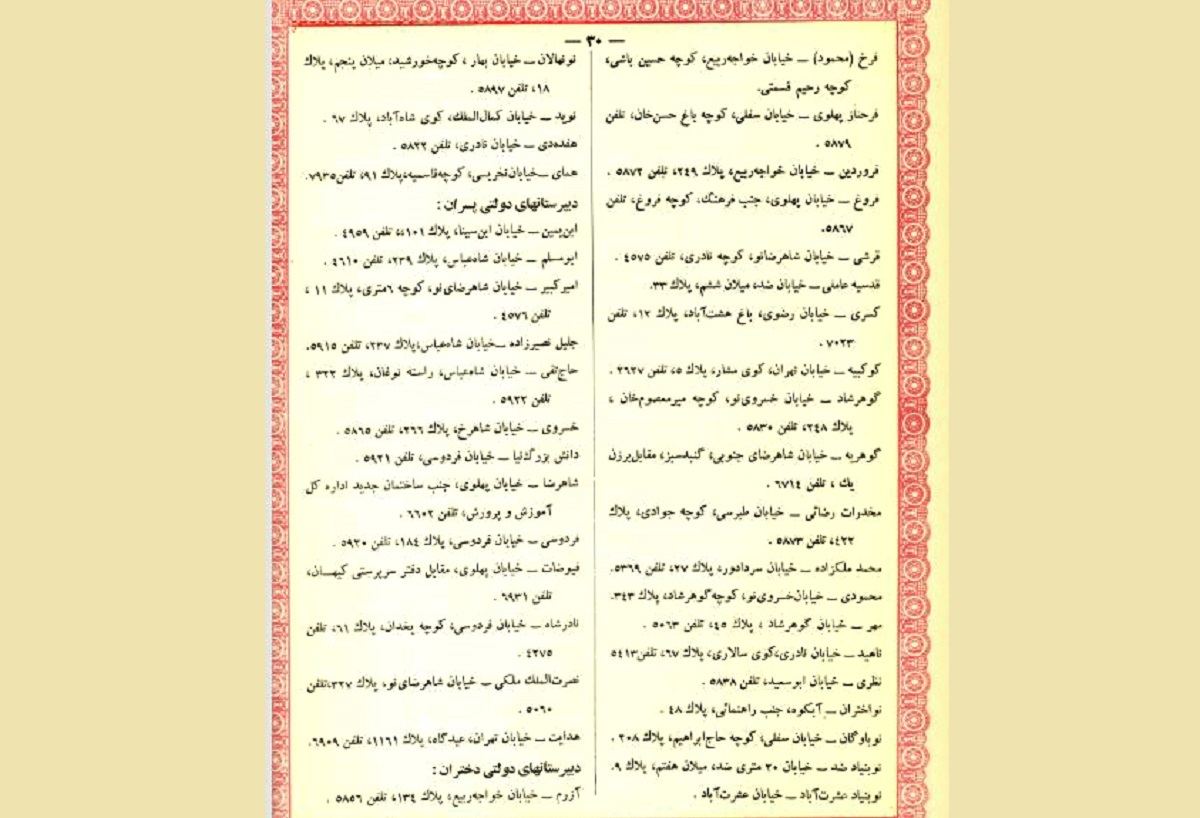 — ۳۰ —
فرخ (محمود) — خیابان خواجه‌ربیع، کوچه حسین باشی،
کوچه رحیم قسمتی.
فرحناز پهلوی — خیابان سفلی، کوچه باغ حسن‌خان، تلفن
۵۸۷۹ .
فروردین — خیابان خواجه‌ربیع، پلاك ۲۴۹، تلفن ۵۸۷۲ .
فروغ — خیابان پهلوی، جنب فرهنگ، کوچه فروغ، تلفن
۵۸۶۷.
قرشی — خیابان شاهرضانو، کوچه نادری، تلفن ۴۵۷۵ .
قدسیه عاملی — خیابان ضد، میلان ششم، پلاك ۳۳.
کسری — خیابان رضوی، باغ هشت‌آباد، پلاك ۱۲، تلفن
۷۰۲۳ .
کوکبیه — خیابان تهران، کوی مشار، پلاك ۵، تلفن ۲۶۲۷ .
گوهرشاد — خیابان خسروی‌نو، کوچه میرمعصوم‌خان ،
پلاك ۲۴۸، تلفن ۵۸۳۰ .
گوهریه — خیابان شاهرضای جنوبی، گنبدسبز، مقابل‌برزن
یك ، تلفن ۶۷۱۴ .
مخدرات رضائی — خیابان طبرسی، کوچه جوادی، پلاك
۴۲۲، تلفن ۵۸۷۳ .
محمد ملکزاده — خیابان سردادور، پلاك ۲۷، تلفن ۵۳۶۹.
محمودی — خیابان‌خسروی‌نو، کوچه‌گوهرشاد، پلاك ۳۴۳.
مهر — خیابان گوهرشاد ، پلاك ۴۵، تلفن ۵۰۶۳ .
ناهید — خیابان نادری،کوی سالاری، پلاك ۶۷، تلفن۵۴۱۳
نظری — خیابان ابوسعید، تلفن ۵۸۳۸ .
نواختران — آبکوه، جنب راهنمائی، پلاك ۴۸ .
نوباوگان — خیابان سفلی، کوچه حاج‌ابراهیم، پلاك ۲۰۸ .
نوبنیاد ضد — خیابان ۲۰ متری ضد، میلان هفتم، پلاك ۹.
نوبنیاد عشرت‌آباد — خیابان عشرت‌آباد .
نونهالان — خیابان بهار ، کوچه‌خورشید، میلان پنجم، پلاك
۱۸، تلفن ۵۸۹۷ .
نوید — خیابان کمال‌الملك، کوی شاه‌آباد، پلاك ۶۷ .
هفده‌دی — خیابان نادری، تلفن ۵۸۲۲ .
همای — خیابان‌نخریسی، کوچه‌قاسمیه،پلاك ۹۱، تلفن۷۹۳۵.
دبیرستانهای دولتی پسران :
ابن‌یمین — خیابان ابن‌سینا، پلاك ۱۰۱، تلفن ۴۹۵۹ .
ابومسلم — خیابان شاه‌عباس، پلاك ۲۳۹، تلفن ۴۶۱۰ .
امیرکبیر — خیابان شاهرضای‌نو، کوچه ۶متری، پلاك ۱۱ ،
تلفن ۴۵۷۶ .
جلیل نصیرزاده — خیابان شاه‌عباس،پلاك ۲۳۷، تلفن ۵۹۱۵.
حاج‌تقی — خیابان شاه‌عباس، راسته نوغان، پلاك ۳۲۲ ،
تلفن ۵۹۲۲ .
خسروی — خیابان شاهرخ، پلاك ۲۶۶، تلفن ۵۸۶۵ .
دانش بزرگ‌نیا — خیابان فردوسی، تلفن ۵۹۲۱ .
شاهرضا — خیابان پهلوی، جنب ساختمان جدید اداره کل
آموزش و پرورش، تلفن ۶۶۰۲ .
فردوسی — خیابان فردوسی، پلاك ۱۸۴، تلفن ۵۹۲۰ .
فیوضات — خیابان پهلوی، مقابل دفتر سرپرستی کیهـــان،
تلفن ۶۹۳۱ .
نادرشاه — خیابان فردوسی، کوچه یخدان، پلاك ۶۱، تلفن
۴۲۷۵ .
نصرت‌الملك ملکی — خیابان شاهرضای‌نو، پلاك ۲۲۷،تلفن
۵۰۶۰ .
هدایت — خیابان تهران، عیدگاه، پلاك ۱۱۶۱، تلفن ۶۹۰۹.
دبیرستانهای دولتی دختران :
آزرم — خیابان خواجه‌ربیع، پلاك ۱۳۴، تلفن ۵۸۵۶ .